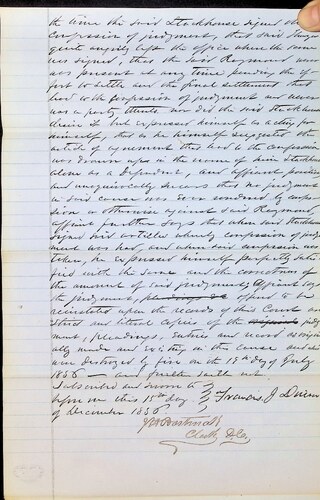 the time the said Stockhouse signed the
confession of judgment, that said
quent angrily left the office where the same
was signed, that the said Raymond never
was present at any time pending the ef
fort to settle and the final settlement that
led to the confession of judgment and never
was a party thereto nor did the said Stockhouse
claim it but expressed himself as acting for
himself, that he himself suggested the
article of agreement that led to the confession
was drawn up in the name of him Stockhouse
alone as a defendant, and affiant positively
and unequivocally swears that no judgment
in said cause was ever rendered by confes
sion or otherwise against said Raymond
affiant further says that when said Stockhouse
signed said articles whereby confession of judg
ment was had, and when said confession was
taken, he expressed himself perfectly satis
fied with the same and the correctness of
the amount of said judgment; Affiant says
the judgment, pleadings &c offered to be
reinstated upon the records of this Court are
true and literal copies of the original judg
ment, pleadings, entries and record origin
ally made and existing in the cause and that
are destroyed by fire on the 19th day of July
1856 — and further saith not
Subscribed and sworn to
before me this 15th day Francis J
of December 1856
Clerk